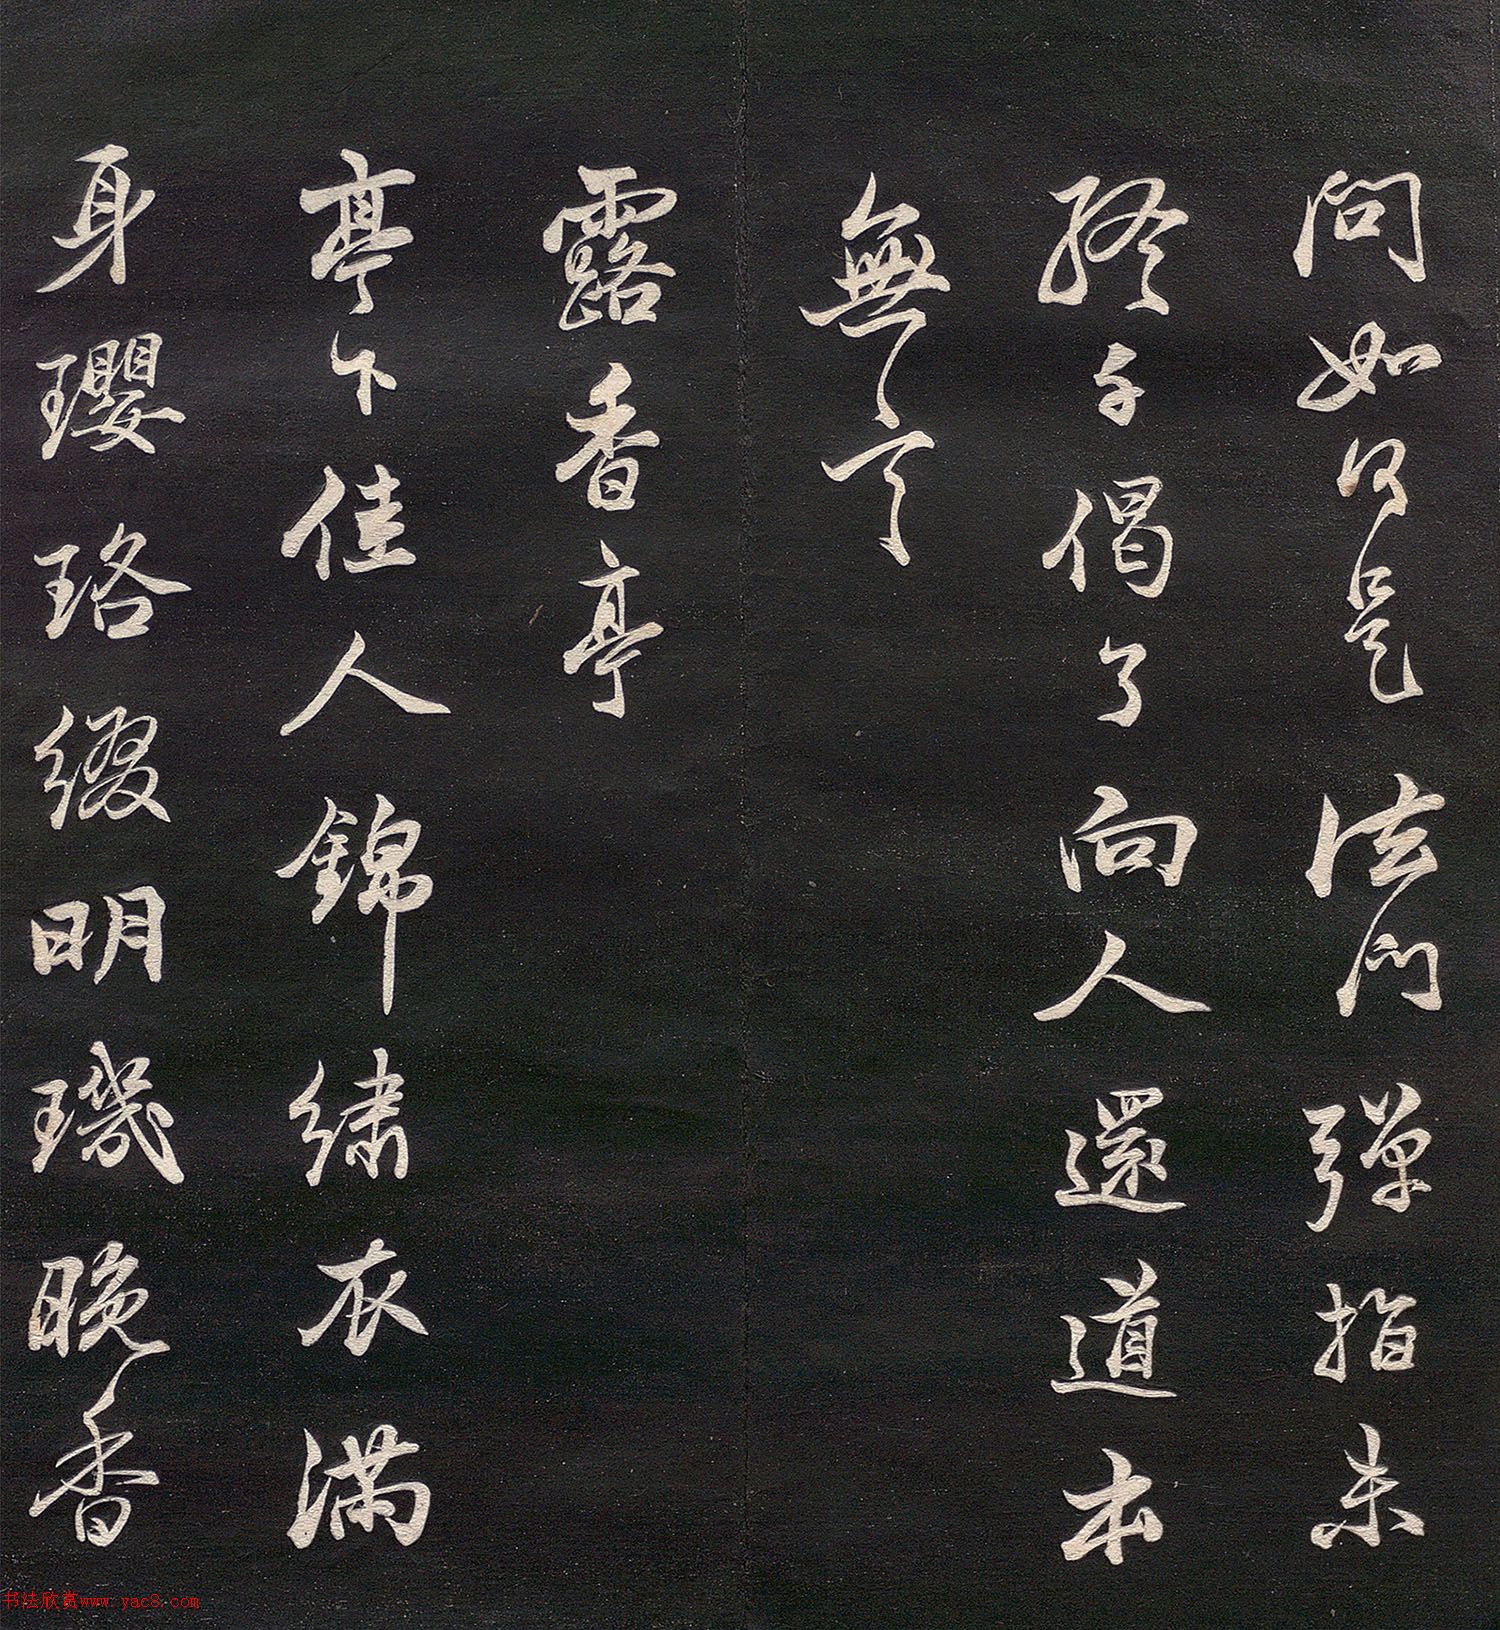 問如何是法門彈指未
終千偈了向人還道本
無言
露香亭
亭下佳人錦繡衣滿
身瓔珞綴明璣晚香
书法欣赏www.yac8.com